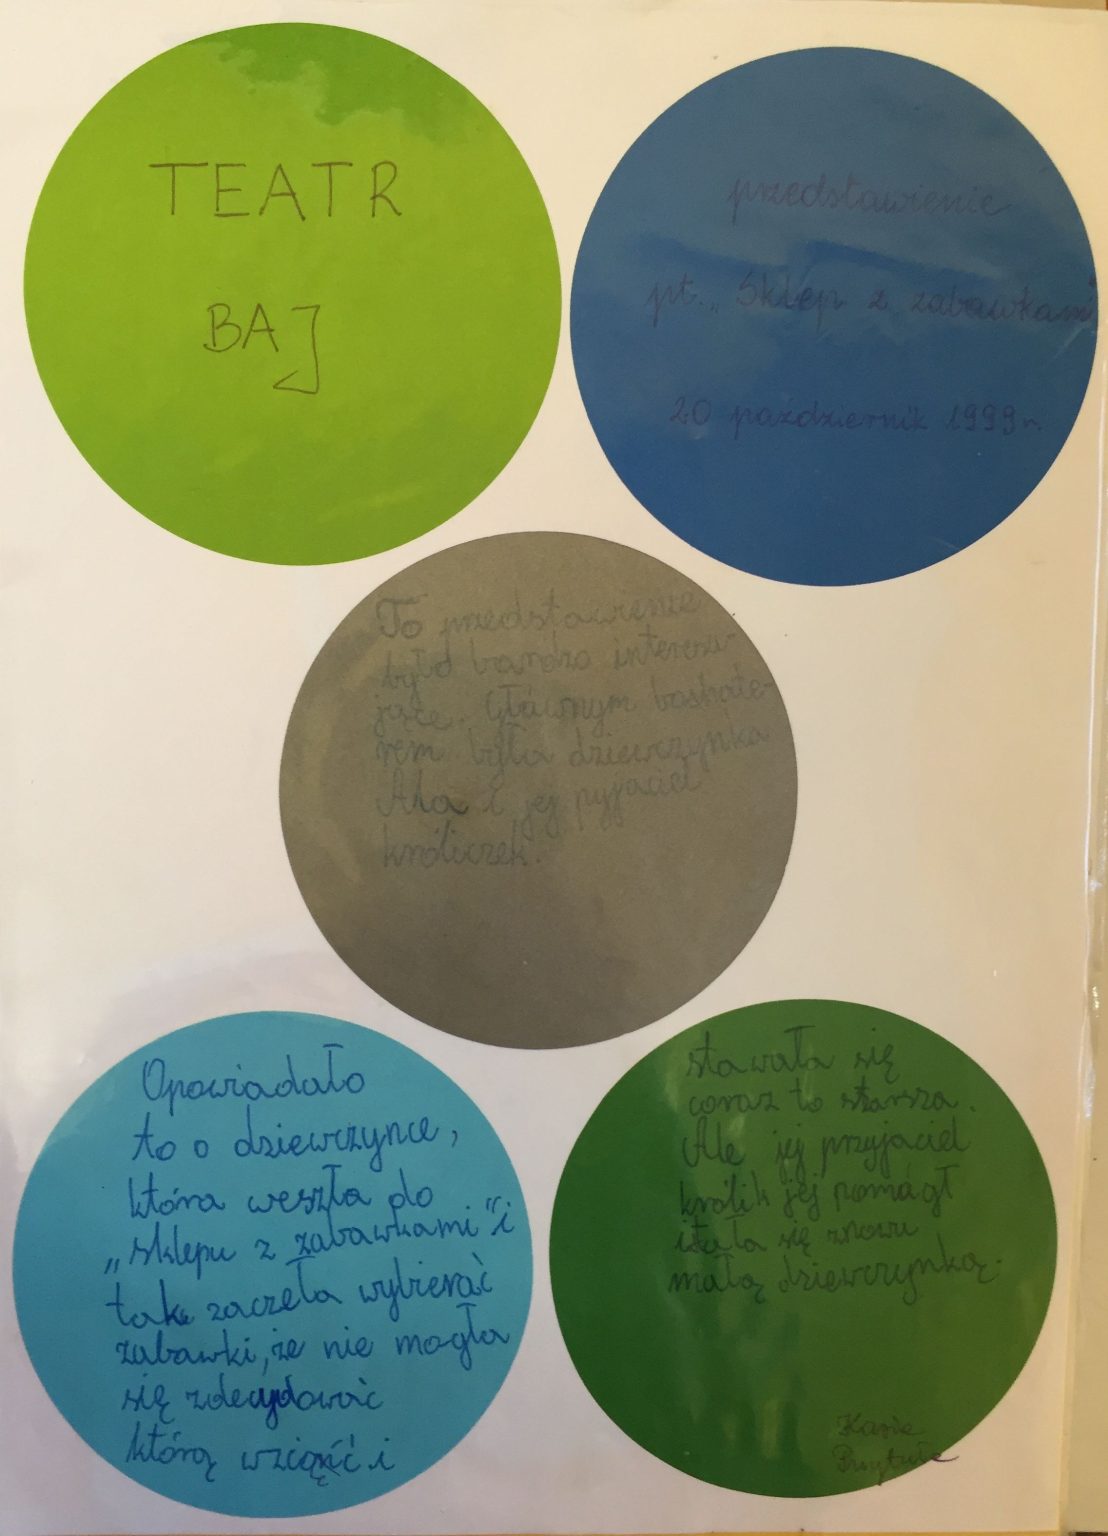 TEATR
BAJ
przedstawienie
pt. „Sklep z zabawkami
20 październik 1999 r.
To przedstawienie
było bardzo interesu-
jące. Głównym bochate-
rem była dziewczynka
Ala i jej pyjaciel
króliczek.
Opowiadało
to o dziewczynce,
która weszła do
„sklepu z zabawkami“ i
tak zaczeła wybierać
zabawki, że nie mogła
się zdecydować
którą wziąźć i
stawała się
coraz to starsza.
Ale jej przyjaciel
królik jej pomógł
i stała się znowu
małą dziewczynką.
Kasia